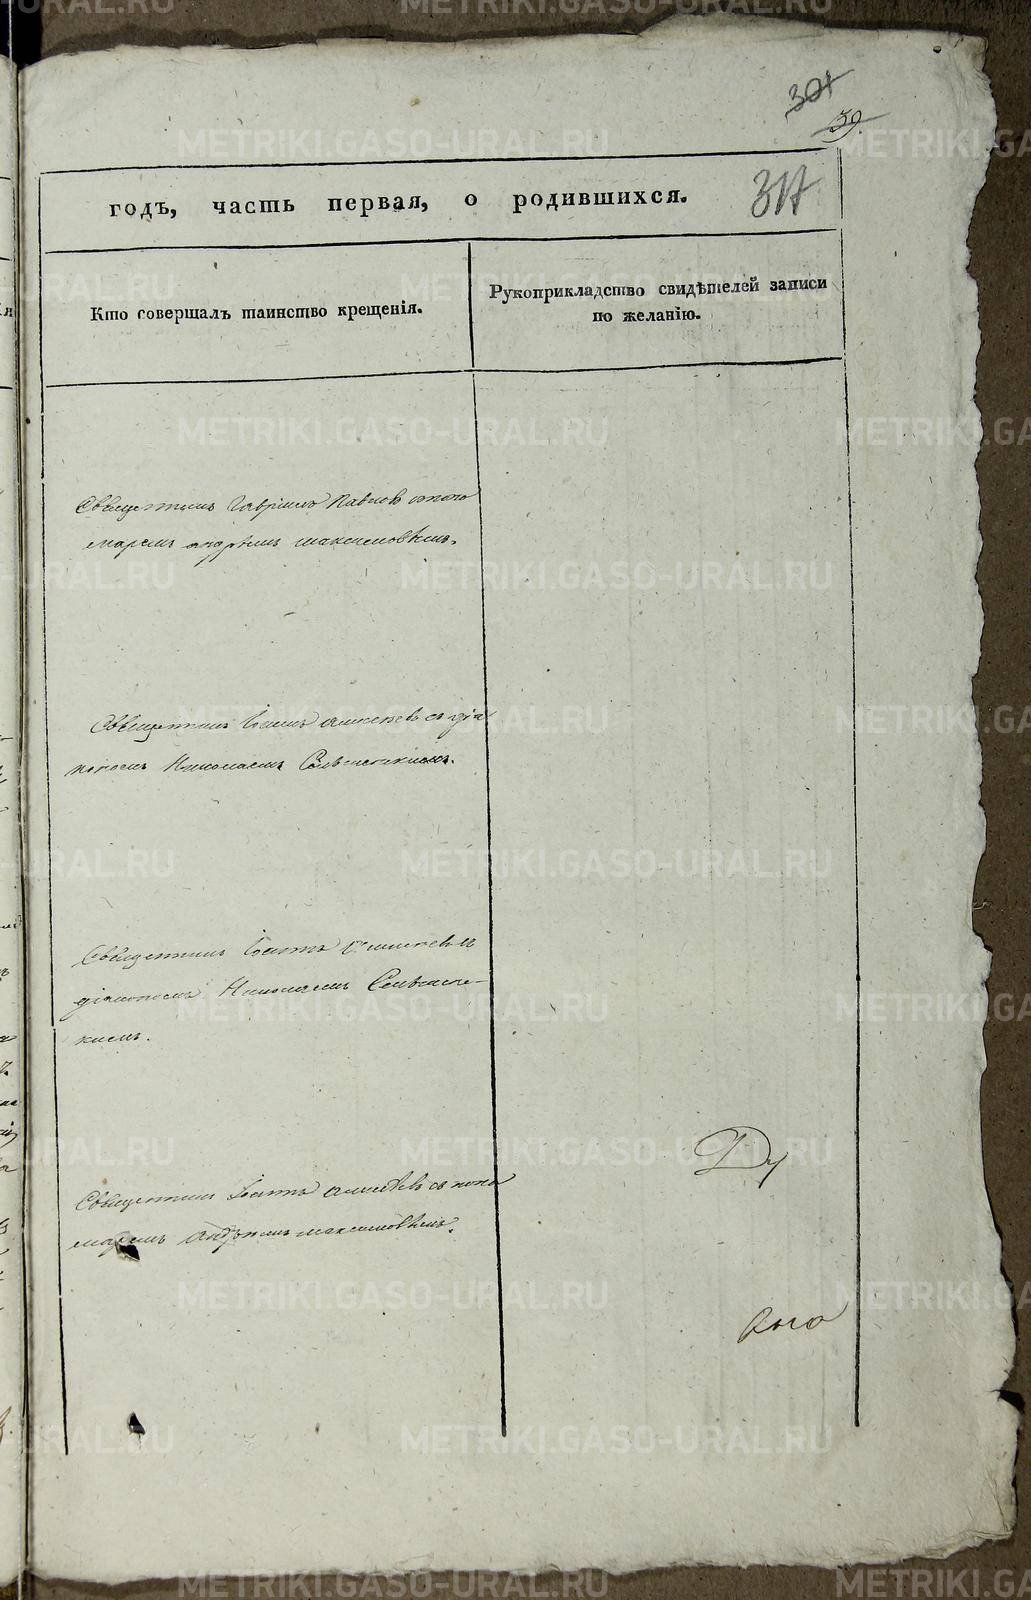 301
39.
годъ, часть первая, о родившихся.
317
Кто совершалъ таинство крещенія.
Рукоприкладство свидѣтелей записи
по желанію.
Священникъ Гавріилъ Павловъ с поно
маремъ андреемъ максимовымъ.
Священникъ Іоаннъ алексѣевъ съ діа
кономъ Николаемъ
Священникъ Іоаннъ
діакономъ Николаемъ
кимъ.
Священникъ Іоаннъ алексѣевъ съ поно
маремъ андреемъ максимовымъ.
Ду
METRIKI.GASO-URAL.RU